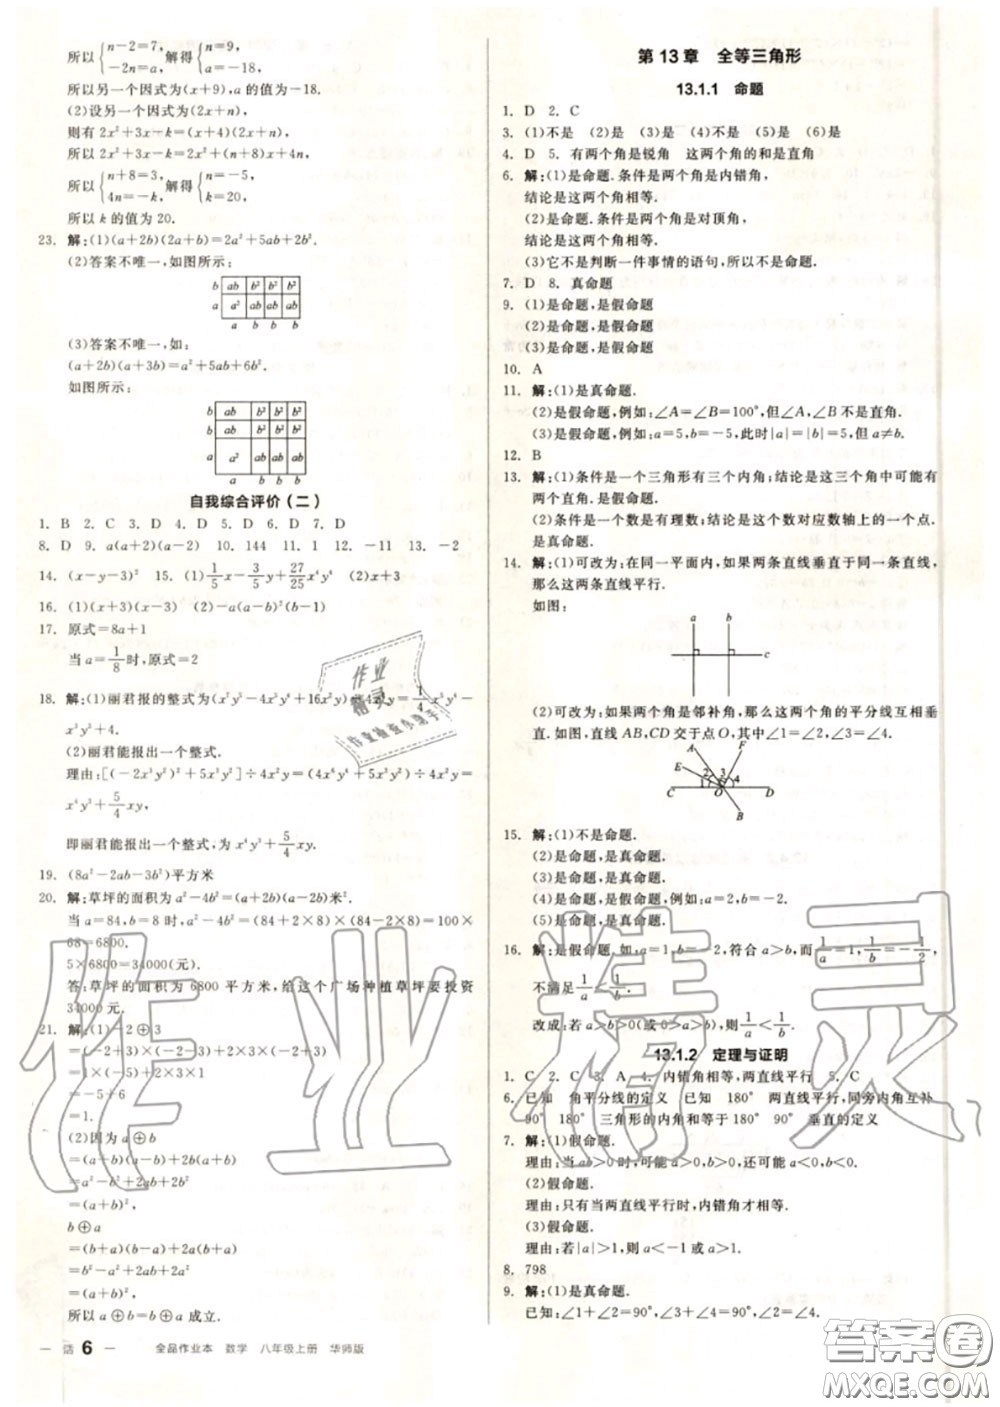 所以{n-2=7, -2n=a, 解得{n=9, a=-18,
所以另一个因式为(x+9),a的值为-18.
(2)设另一个因式为(2x+n),
则有2x²+3x-k=(x+4)(2x+n),
所以2x²+3x-k=2x²+(n+8)x+4n,
所以{n+8=3, 4n=-k, 解得{n=-5, k=20.
所以k的值为20.
23. 解:(1)(a+2b)(2a+b)=2a²+5ab+2b².
(2)答案不唯一,如图所示:
b ab b² b² b²
a a² ab ab ab
a b b b
(3)答案不唯一,如:
(a+2b)(a+3b)=a²+5ab+6b².
如图所示:
b ab b² b² b²
b ab b² b² b²
a a² ab ab ab
a b b b
自我综合评价(二)
1. B 2. C 3. D 4. D 5. D 6. D 7. D
8. D 9. a(a+2)(a-2) 10. 144 11. 1 12. -11 13. -2
14. (x-y-3)² 15. (1)1/5x-3/5y+27/25x⁴y⁶ (2)x+3
16. (1)(x+3)(x-3) (2)-a(a-b)²(b-1)
17. 原式=8a+1
当a=1/8时,原式=2
18. 解:(1)丽君报的整式为(x³y⁵-4x³y⁴+16x²y)÷4x²y=1/4xy⁴-
x³y³+4.
(2)丽君能报出一个整式.
理由:[(-2x³y²)²+5x³y²]÷4x²y=(4x⁶y⁴+5x³y²)÷4x²y=
x⁴y³+5/4xy,
即丽君能报出一个整式,为x⁴y³+5/4xy.
19. (8a²-2ab-3b²)平方米
20. 解:草坪的面积为a²-4b²=(a+2b)(a-2b)米².
当a=84,b=8时,a²-4b²=(84+2×8)×(84-2×8)=100×
68=6800.
5×6800=34000(元).
答:草坪的面积为6800平方米,给这个广场种植草坪要投资
34000元.
21. 解:(1)-2⊕3
=(-2+3)×(-2-3)+2×3×(-2+3)
=1×(-5)+2×3×1
=-5+6
=1.
(2)因为a⊕b
=(a+b)(a-b)+2b(a+b)
=a²-b²+2ab+2b²
=(a+b)²,
b⊕a
=(b+a)(b-a)+2a(b+a)
=b²-a²+2ab+2a²
=(a+b)²,
所以a⊕b=b⊕a成立.
第13章 全等三角形
13.1.1 命题
1. D 2. C
3. (1)不是 (2)是 (3)是 (4)不是 (5)是 (6)是
4. D 5. 有两个角是锐角 这两个角的和是直角
6. 解:(1)是命题.条件是两个角是内错角,
结论是这两个角相等.
(2)是命题.条件是两个角是对顶角,
结论是这两个角相等.
(3)它不是判断一件事情的语句,所以不是命题.
7. D 8. 真命题
9. (1)是命题,是假命题
(2)是命题,是假命题
(3)是命题,是假命题
10. A
11. 解:(1)是真命题.
(2)是假命题,例如:∠A=∠B=100°,但∠A,∠B不是直角.
(3)是假命题,例如:a=5,b=-5,此时|a|=|b|=5,但a≠b.
12. B
13. 解:(1)条件是一个三角形有三个内角;结论是这三个角中可能有
两个直角.是假命题.
(2)条件是一个数是有理数;结论是这个数对应数轴上的一个点.
是真命题.
14. 解:(1)可改为:在同一平面内,如果两条直线垂直于同一条直线,
那么这两条直线平行.
如图:
a b
c
(2)可改为:如果两个角是邻补角,那么这两个角的平分线互相垂
直.如图,直线AB,CD交于点O,其中∠1=∠2,∠3=∠4.
A F
E 2 3
1 4
C O D
B
15. 解:(1)不是命题.
(2)是命题,是真命题.
(3)是命题,是真命题.
(4)是命题,是假命题,例如:a=2,b=-2.
(5)是命题,是真命题.
16. 解:是假命题.如:a=1,b=-2,符合a>b,而1/a=1,1/b=-1/2,
不满足1/a<1/b.
改成:若a>b>0(或0>a>b),则1/a<1/b.
13.1.2 定理与证明
1. C 2. C 3. A 4. 内错角相等,两直线平行 5. C
6. 已知 角平分线的定义 已知 180° 两直线平行,同旁内角互补
90° 180° 三角形的内角和等于180° 90° 垂直的定义
7. 解:(1)假命题.
理由:当ab>0时,可能a>0,b>0,还可能a<0,b<0.
(2)假命题.
理由:只有当两直线平行时,内错角才相等.
(3)假命题.
理由:若|a|>1,则a<-1或a>1.
8. 798
9. 解:(1)是真命题.
已知:∠1+∠2=90°,∠3+∠4=90°,∠2=∠4,
— 6 — 全品作业本 数学 八年级上册 华师版
作业精灵
作业精灵
答案圈
MXQE.COM